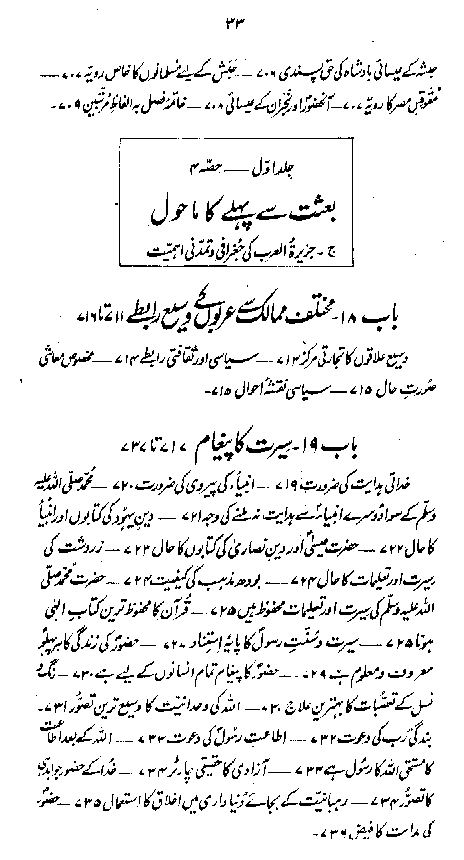 ۳۳
حبشہ کے عیسائی بادشاہ کی حق پسندی ۷۰۶ — حبش کے لیے مسلمانوں کا خاص رویّہ ۷۰۷ —
مقوقس مصر کا رویّہ ۷۰۷ — آنحضورؐ اور نجران کے عیسائی ۷۰۸ — خاتمہ فصل بہ الفاظِ مرتبین ۷۰۹۔
جلد اوّل — حصّہ ۴
بعثت سے پہلے کا ماحول
ج۔ جزیرۃ العرب کی جغرافی و تمدّنی اہمیّت
باب ۱۸۔ مختلف ممالک سے عربوں کے وسیع رابطے ۷۱۱ تا ۷۱۶
وسیع علاقوں کا تجارتی مرکز ۷۱۳ — سیاسی اور ثقافتی رابطے ۷۱۴ — مخصوص معاشی
صورتِ حال ۷۱۵ — سیاسی نقشۂ احوال ۷۱۵۔
باب ۱۹۔ سیرت کا پیغام ۷۱۷ تا ۷۳۷
خدائی ہدایت کی ضرورت ۷۱۹ — انبیاءؑ کی پیروی کی ضرورت ۷۲۰ — محمد صلی اللہ علیہ
وسلّم کے سوا دوسرے انبیاءؑ سے ہدایت نہ ملنے کی وجہ ۷۲۱ — دینِ یہود کی کتابوں اور انبیاءؑ
کا حال ۷۲۲ — حضرت عیسیٰؑ اور دینِ نصاریٰ کی کتابوں کا حال ۷۲۳ — زردشت کی
سیرت اور تعلیمات کا حال ۷۲۴ — بودھ مذہب کی کیفیت ۷۲۴ — حضرت محمد صلی
اللہ علیہ وسلّم کی سیرت اور تعلیمات محفوظ ہیں ۷۲۵ — قرآن کا محفوظ ترین کتابِ الٰہی
ہونا ۷۲۵ — سیرت و سنّتِ رسولؐ کا پایۂ استناد ۷۲۷ — حضورؐ کی زندگی کا ہر پہلو
معروف و معلوم ہے ۷۲۹ — حضورؐ کا پیغام تمام انسانوں کے لیے ہے ۷۳۰ — رنگ و
نسل کے تعصّبات کا بہترین علاج ۷۳۰ — اللہ کی وحدانیت کا وسیع ترین تصوّر ۷۳۱۔
بندگیِ رب کی دعوت ۷۳۲ — اطاعتِ رسولؐ کی دعوت ۷۳۳ — اللہ کے بعد اطاعت
کا مستحق اللہ کا رسول ہے ۷۳۳ — آزادی کا حقیقی چارٹر ۷۳۴ — خدا کے حضور جوابدہی
کا تصوّر ۷۳۴ — رہبانیّت کے بجائے دُنیا داری میں اخلاق کا استعمال ۷۳۵ — حضورؐ
کی ہدایت کا فیض ۷۳۶۔